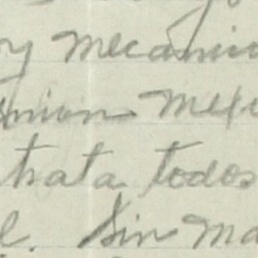 mecánic
nion mex
trata todos
Sin ma